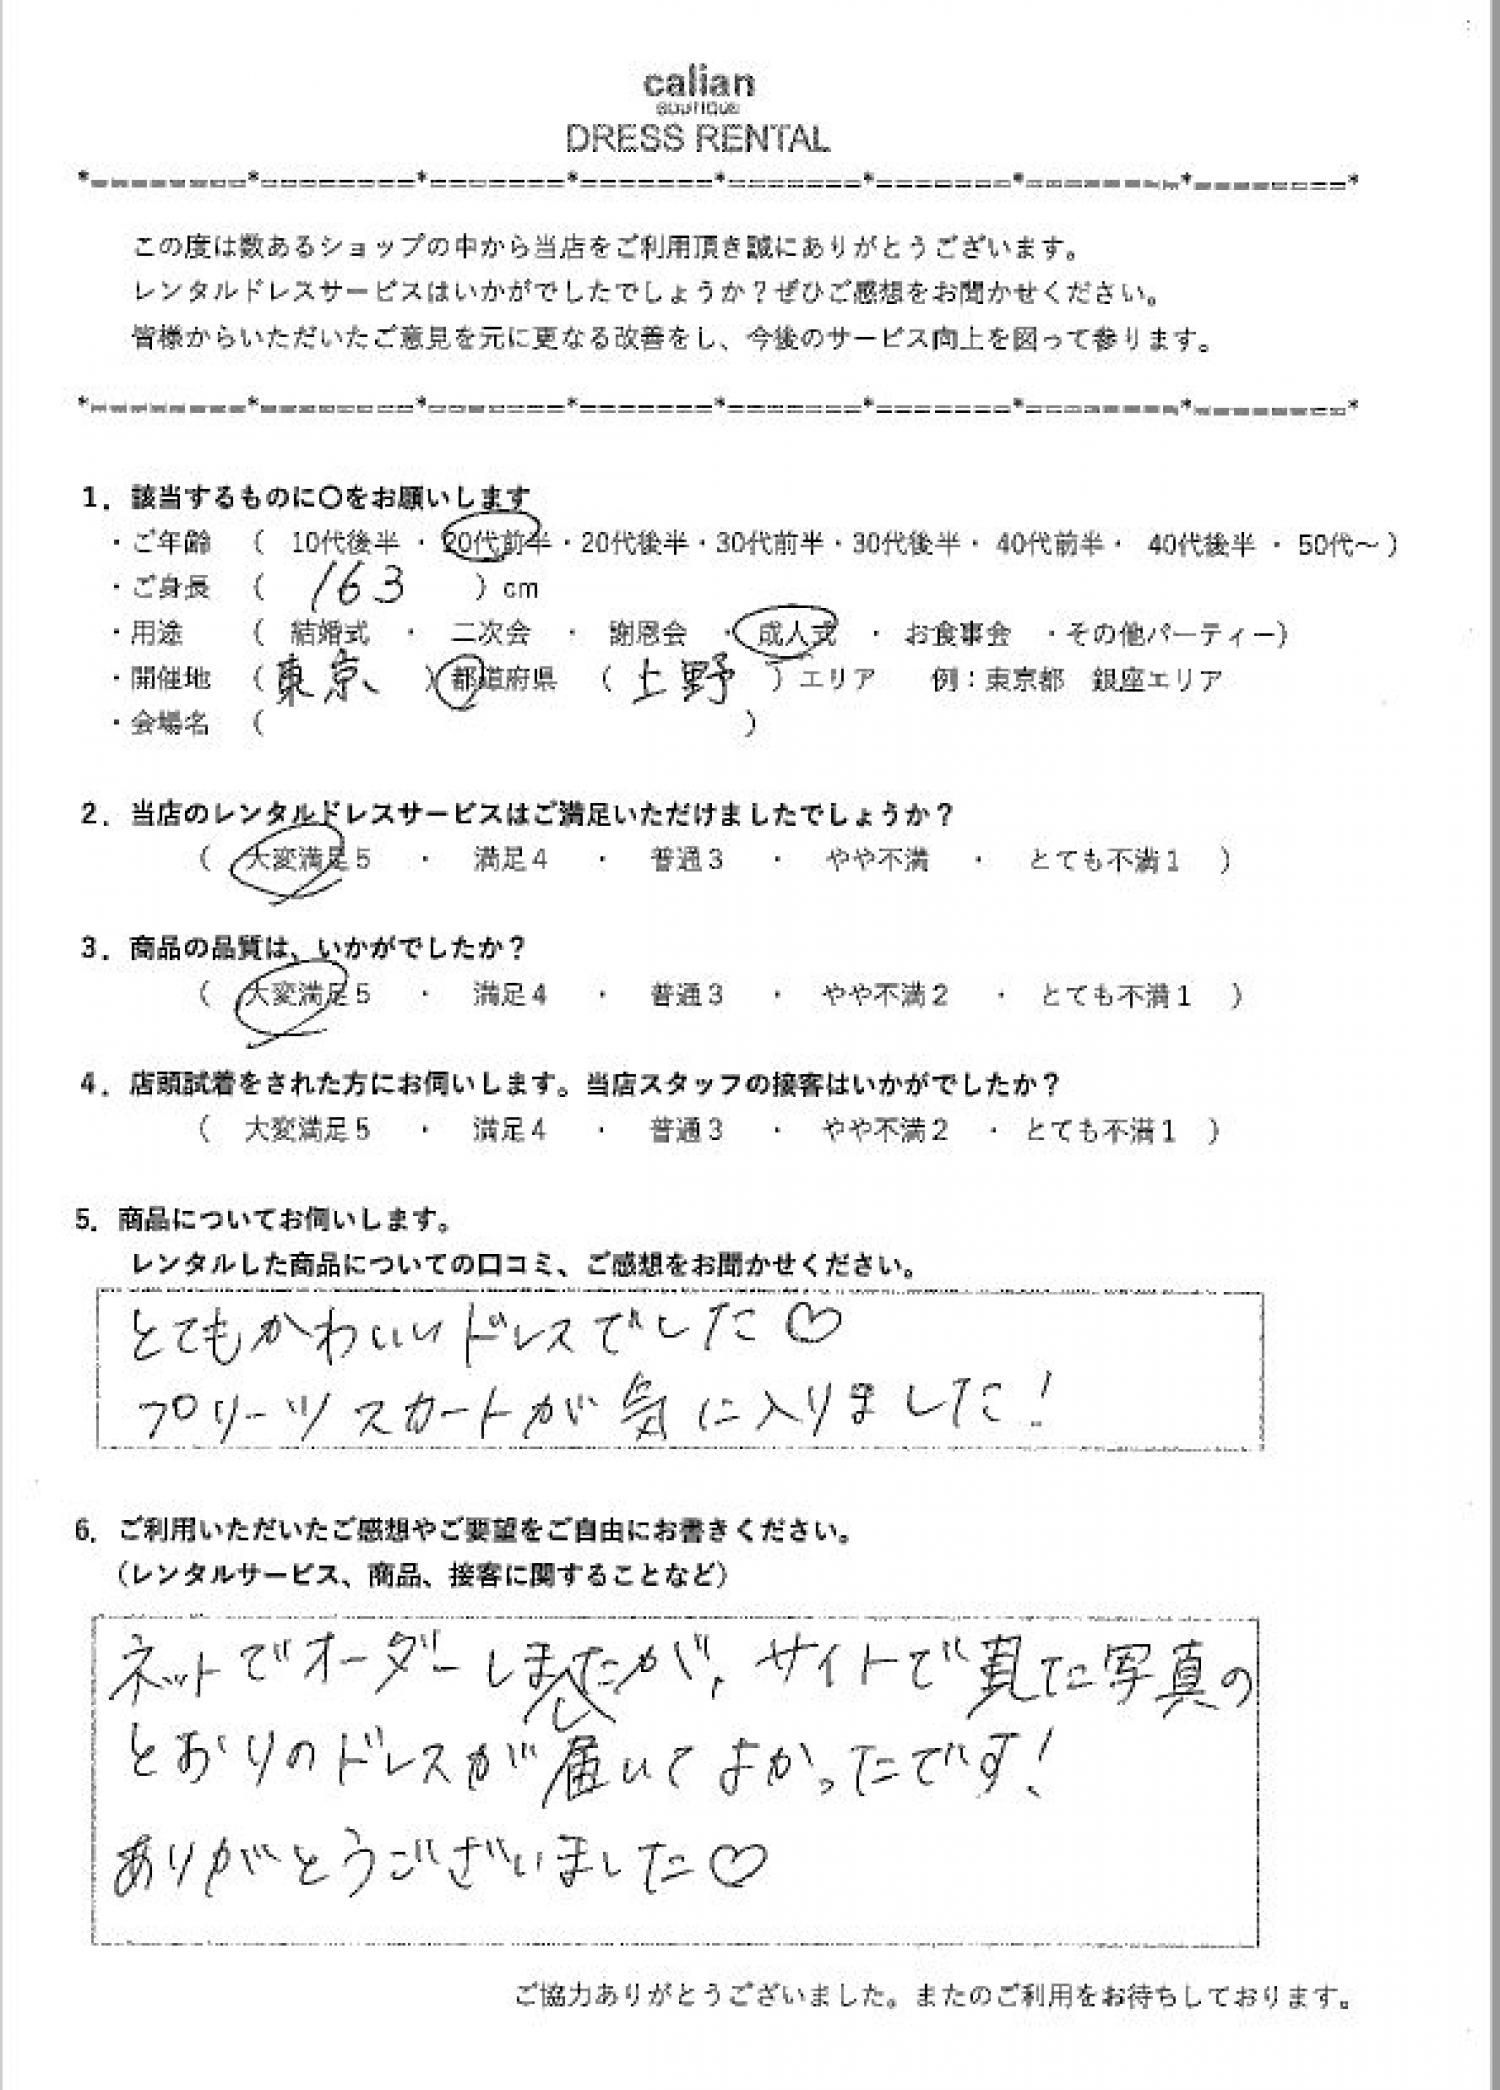 calian
BOUTIQUE
DRESS RENTAL
*---------*=========*========*========*========*========*=========*=========*
この度は数あるショップの中から当店をご利用頂き誠にありがとうございます。
レンタルドレスサービスはいかがでしたでしょうか？ぜひご感想をお聞かせください。
皆様からいただいたご意見を元に更なる改善をし、今後のサービス向上を図って参ります。
*---------*=========*========*========*========*========*=========*=========*
1．該当するものに〇をお願いします
・ご年齢 （ 10代後半 ・ 20代前半・20代後半・30代前半・30代後半・ 40代前半・ 40代後半 ・ 50代～ ）
・ご身長 （ 163 ）cm
・用途 （ 結婚式 ・ 二次会 ・ 謝恩会 ・ 成人式 ・ お食事会 ・その他パーティー）
・開催地 （ 東京 ）都道府県 （ 上野 ）エリア 例：東京都 銀座エリア
・会場名 （ ）
2．当店のレンタルドレスサービスはご満足いただけましたでしょうか？
（ 大変満足５ ・ 満足４ ・ 普通３ ・ やや不満 ・ とても不満１ ）
3．商品の品質は、いかがでしたか？
（ 大変満足５ ・ 満足４ ・ 普通３ ・ やや不満２ ・ とても不満１ ）
4．店頭試着をされた方にお伺いします。当店スタッフの接客はいかがでしたか？
（ 大変満足５ ・ 満足４ ・ 普通３ ・ やや不満２ ・ とても不満１ ）
5．商品についてお伺いします。
レンタルした商品についての口コミ、ご感想をお聞かせください。
とてもかわいいドレスでした♡
プリーツスカートが気に入りました！
6．ご利用いただいたご感想やご要望をご自由にお書きください。
（レンタルサービス、商品、接客に関することなど）
ネットでオーダーしましたが、サイトで見た写真の
とおりのドレスが届いてよかったです！
ありがとうございました♡
ご協力ありがとうございました。またのご利用をお待ちしております。